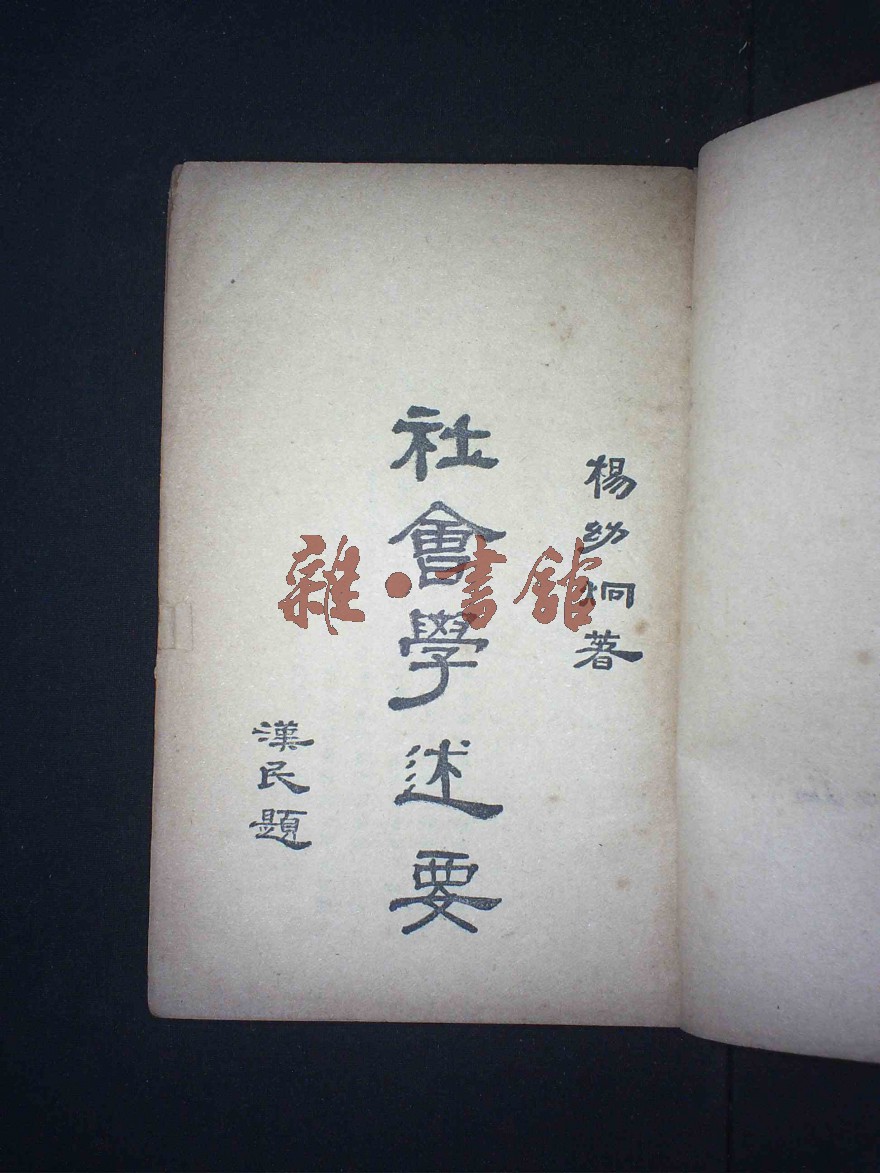 楊幼炯著
社會學述要
漢民題
雜·書館